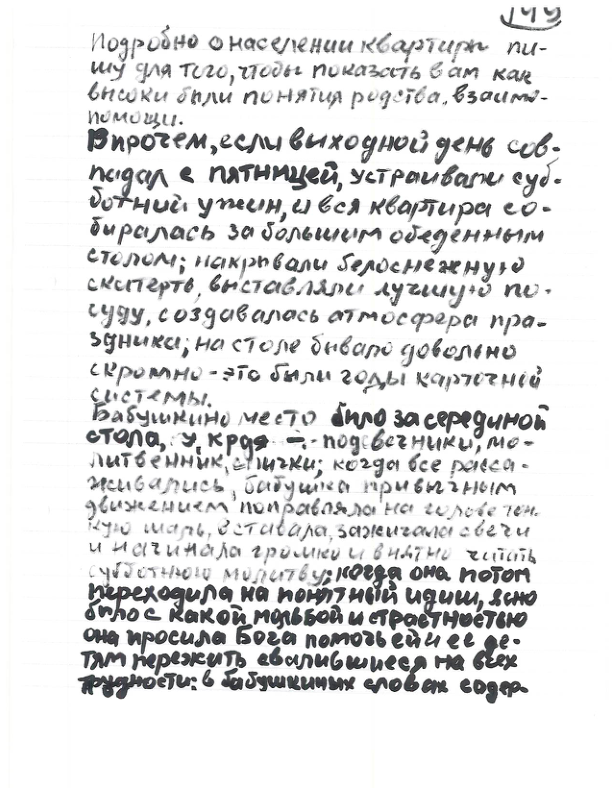 149
Подробно о населении квартиры пи-
шу для того, чтобы показать вам как
высоки были понятия родства, взаимо-
помощи.
Впрочем, если выходной день сов-
падал с пятницей, устраивали суб-
ботний ужин, и вся квартира со-
биралась за большим обеденным
столом; накрывали белоснежную
скатерть, выставляли лучшую по-
суду, создавалась атмосфера пра-
здника; на столе бывало довольно
скромно - это были годы карточной
системы.
Бабушкино место было за серединой
стола, у края - подсвечники, мо-
литвенник, спички; когда все расса-
живались, бабушка привычным
движением поправляла на голове тон-
кую шаль, вставала, зажигала свечи
и начинала громко и внятно читать
субботнюю молитву; когда она потом
переходила на понятный идиш, ясно
было с какой мольбой и страстностью
она просила Бога помочь ей и ее де-
тям пережить свалившиеся на всех
трудности: в бабушкиных словах содер-